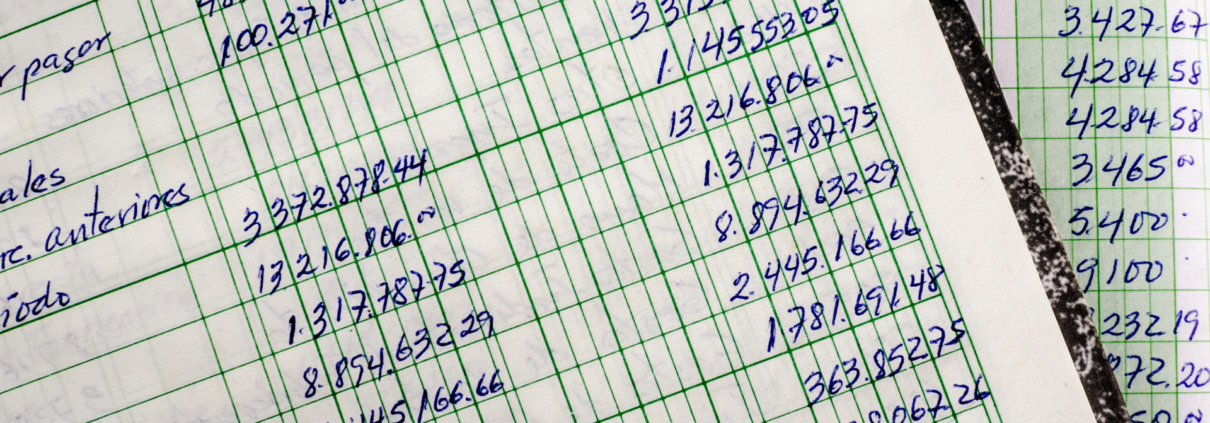 r pagar 100.271.00
1.145553.05
ales 13.216.806.00
rc. anteriores 3.372.878.44 1.317.787.75
íodo 13.216.806.00 8.894.632.29
1.317.787.75 2.445.166.66
8.894.632.29 1.781.691.48
166.66 363.852.75
067.26
3.427.67
4.284.58
4284.58
3.465 00
5.400
9100
232.19
972.20